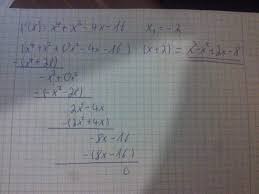 f(x) = x⁴ + x² - 4x - 16   x₁ = -2
(x⁴ + x³ + 0x² - 4x - 16) : (x + 2) = x³ - x² + 2x - 8
-(x⁴ + 2x³)
-x³ + 0x²
-(-x³ - 2x²)
2x² - 4x
-(2x² + 4x)
-8x - 16
-(8x - 16)
0